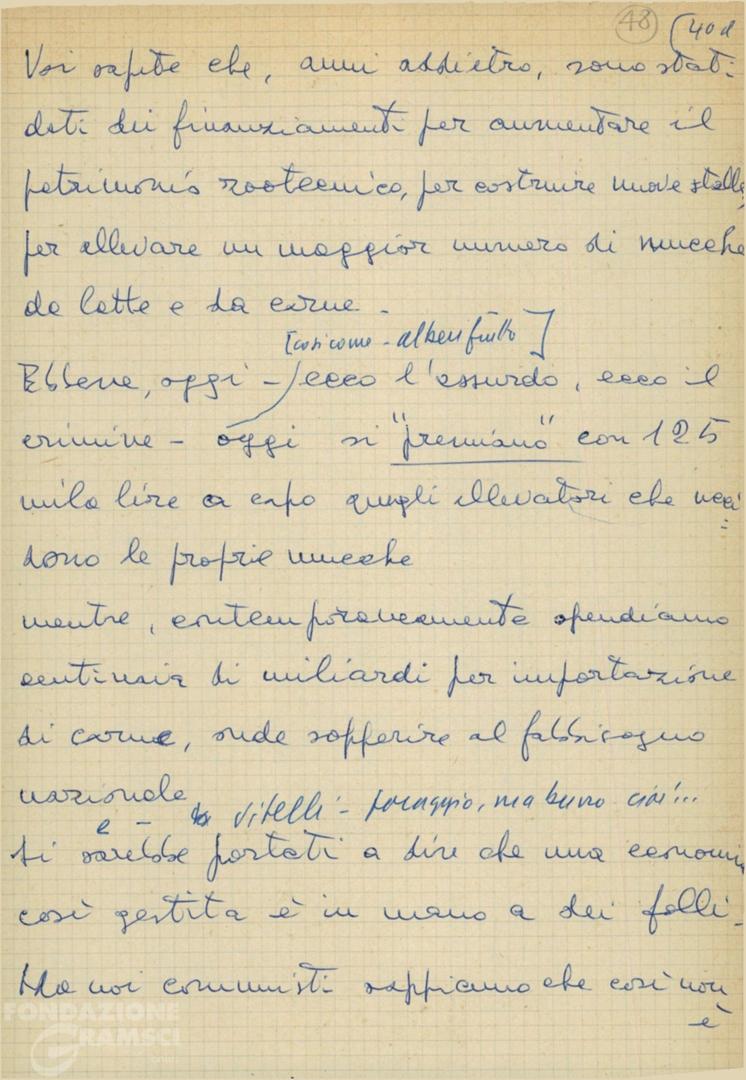 48 (40d
Voi sapete che, anni addietro, sono stati
dati dei finanziamenti per aumentare il
patrimonio zootecnico, per costruire nuove stalle,
per allevare un maggior numero di mucche
da latte e da carne.
[così come - alberi frutto]
Ebbene, oggi - ecco l'assurdo, ecco il
crimine - oggi si "premiano" con 125
mila lire a capo quegli allevatori che ucci=
dono le proprie mucche
mentre, contemporaneamente spendiamo
centinaia di miliardi per importazione
di carne, onde sopperire al fabbisogno
nazionale
e - vitelli - foraggio, ma buono
Si sarebbe portati a dire che una economia
così gestita è in mano a dei folli.
Ma noi comunisti sappiamo che così non
è
FONDAZIONE
GRAMSCI